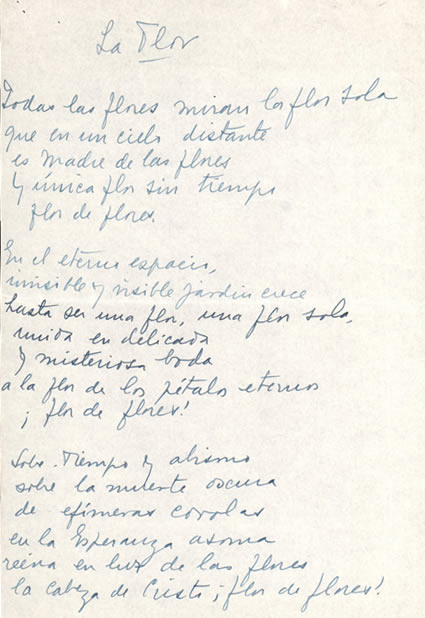 La Flor
Todas las flores miran la flor sola
que en un cielo distante
es madre de las flores
y única flor sin tiempo
flor de flores.
En el eterno espacio,
invisible y visible jardín crece
hasta ser una flor, una flor sola,
unida en delicada
y misteriosa boda
a la flor de los pétalos eternos
¡flor de flores!
Sobre tiempo y abismo
sobre la muerte oscura
de efímeras corolas
en la Esperanza asoma
reina en luz de las flores
la cabeza de Cristo ¡flor de flores!